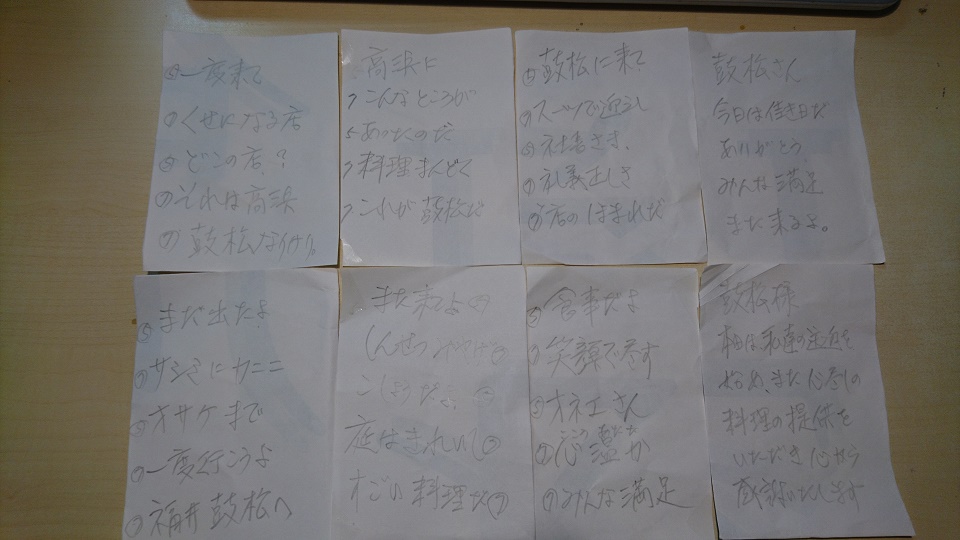 ⑤一度来て
⑦くせになる店
⑤どこの店?
⑦それは高浜
⑦鼓松なり
高浜に
7こんなところが
5あったのだ
7料理まんぞく
7これが鼓松だ
⑤鼓松に来て
⑦スーツで迎え
⑤社長さま、
⑦礼義正しき
⑦店のほまれだ
鼓松さん
今日は佳き日だ
ありがとう
みんな満足
また来るよ。
⑤まだ出たよ
⑦サシミにカニニ
⑤オサケまで
⑦一度行こうよ
⑦福井鼓松へ
また来るよ
しんせつ
庭はきれいし⑤
すごい料理だ⑦
⑤食事だよ
⑦笑顔で尽す
⑤オネエさん
心
⑦みんな満足
鼓松様
本日は私達の送迎を
始め、また心尽しの
料理の提供を
いただき心から
感謝いたします